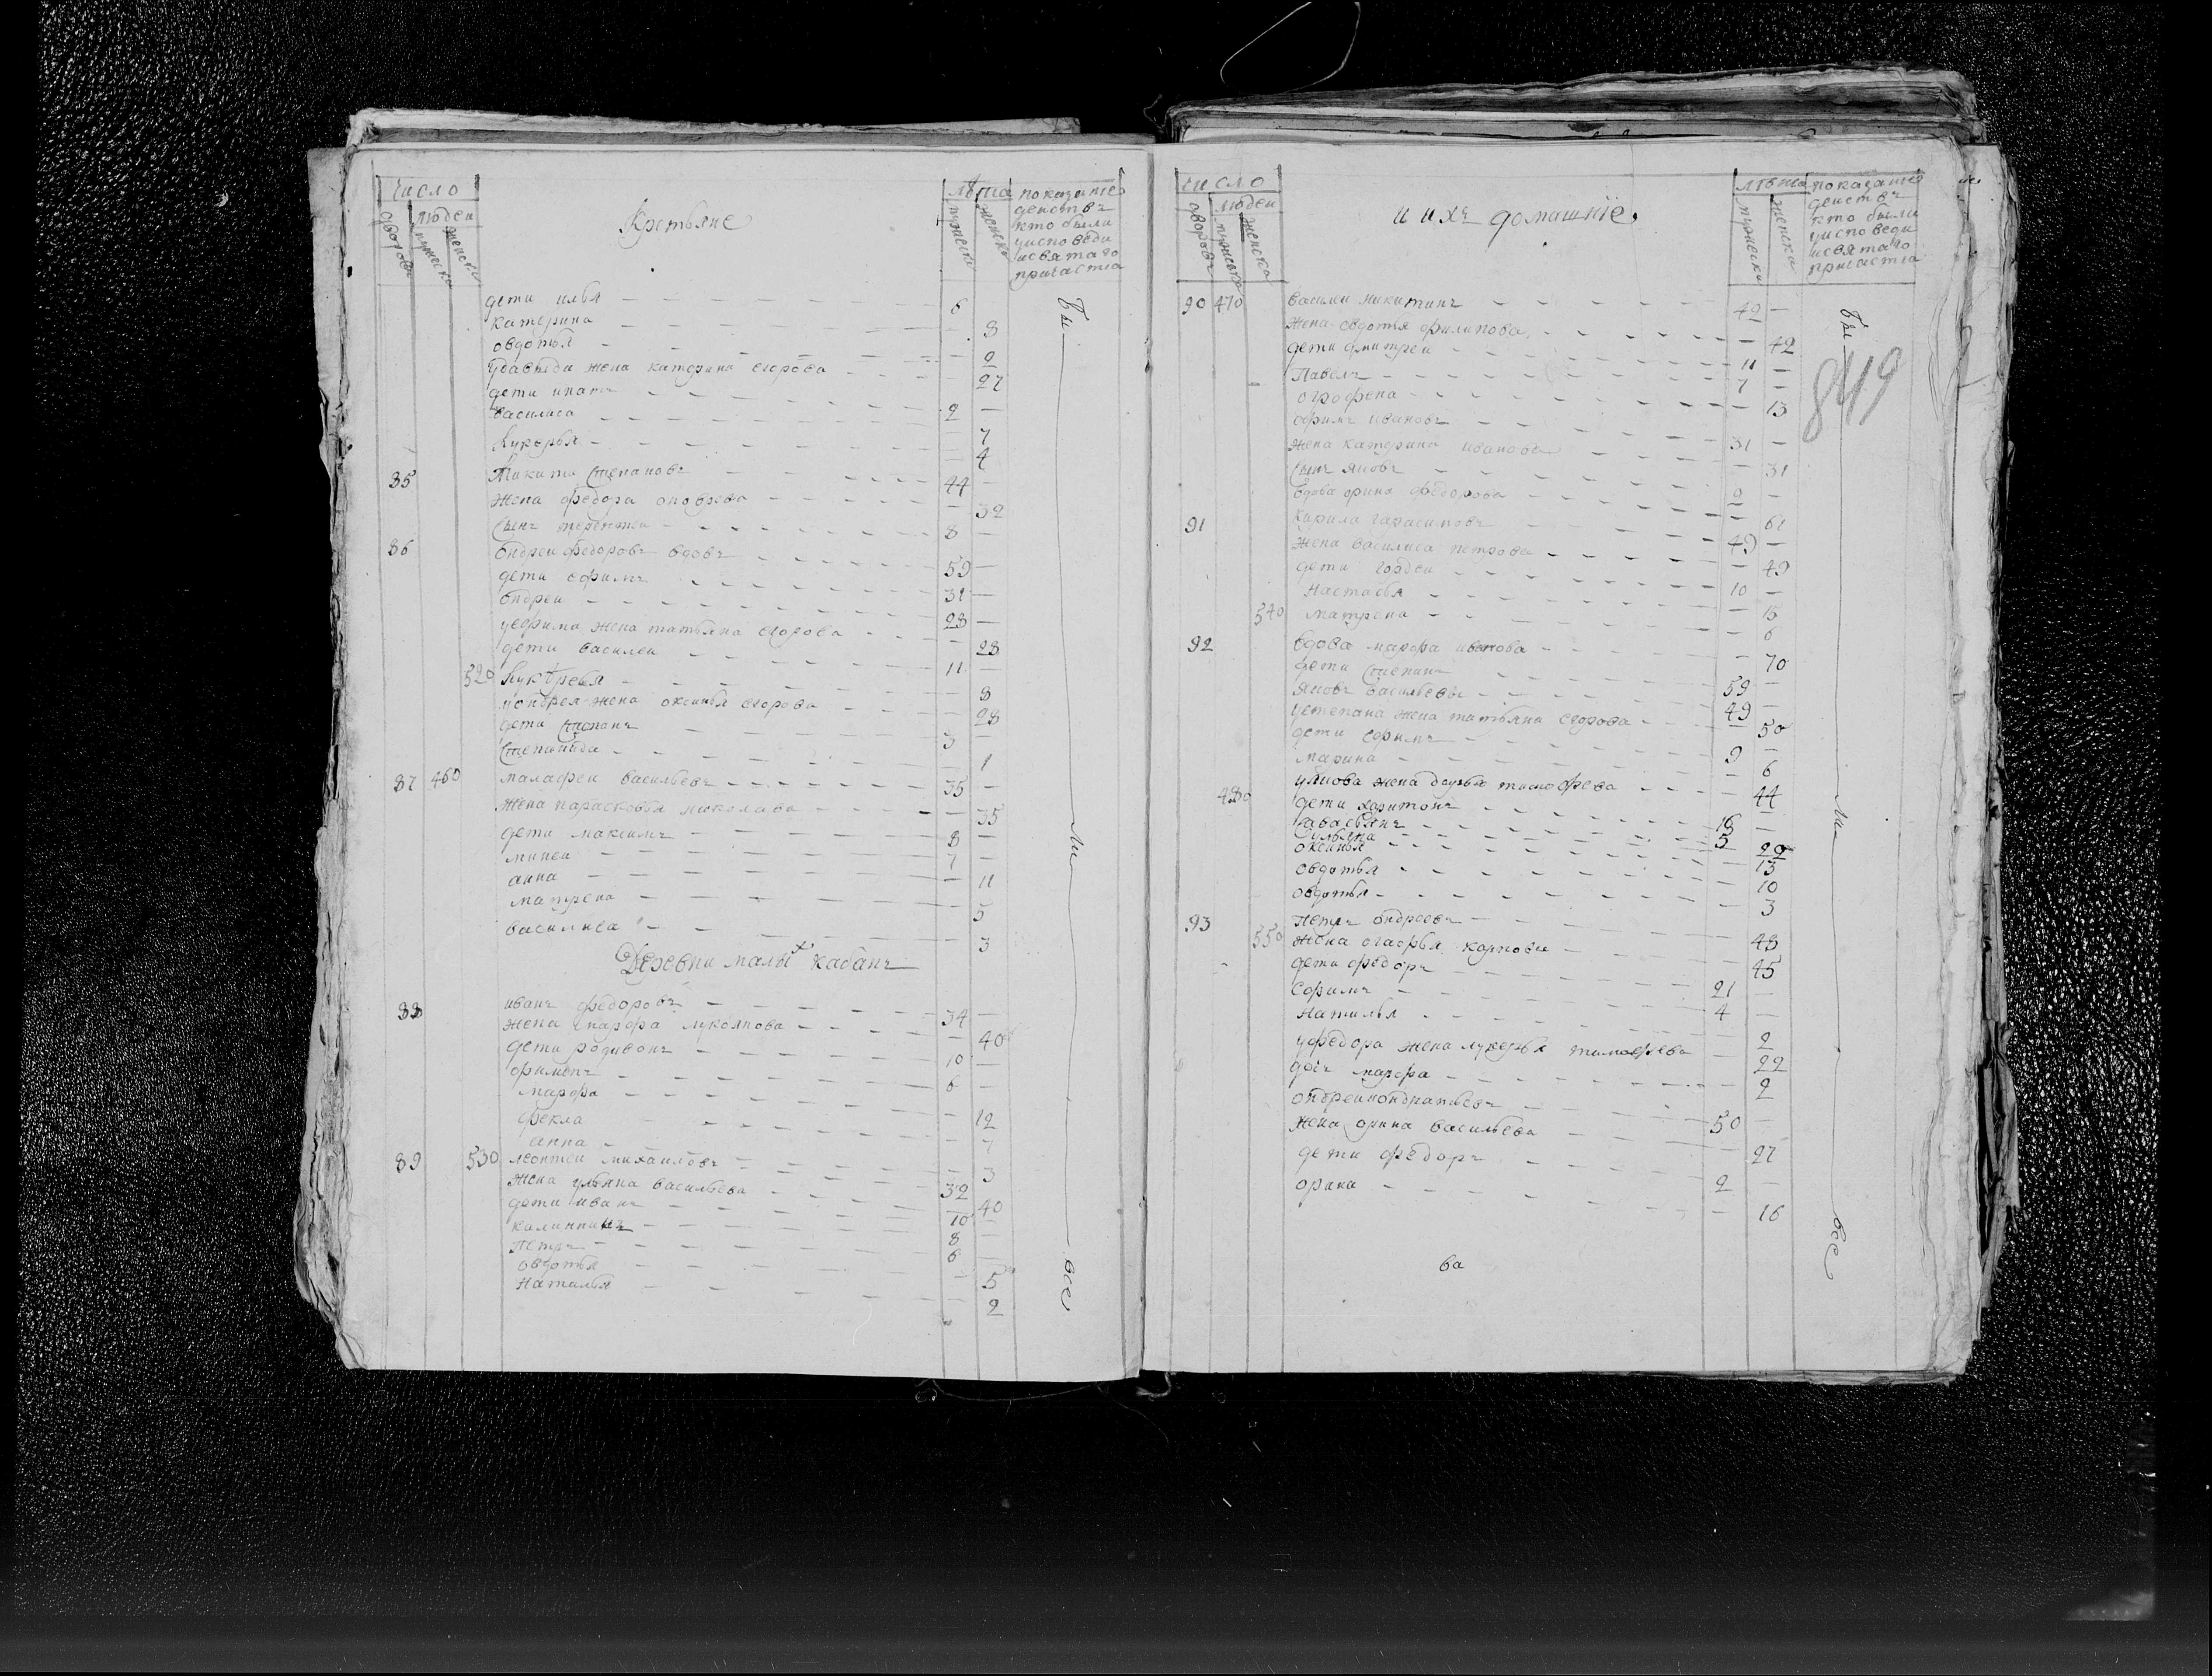 число
Крестьяне
лѣта
показание
людей
действъ
дворовъ
мужеска
женска
мужеска
женска
кто были
уисповеди
исвятаго
причастіа
дети илья 6
катерина 8
овдотья 2
удавыда жена катерина егорова 27
дети ипатъ 2
василиса 7
лукерья 4
85 Никита Степановъ 44
жена федора ондреева 32
сынъ терентеи 8
86 ондреи федоровъ вдовъ 59
дети ефимъ 31
ондреи 28
уефима жена татьяна егорова 28
дети василеи 11
520 лукерья 8
уондрея жена оксинья егорова 28
дети степанъ 3
степанида 1
87 460 малафеи васильевъ 35
жена парасковья николаева 35
дети максимъ 8
минеи 7
анна 11
матрена 5
василиса 3
Деревни малы кабанъ
88 иванъ федоровъ 34
жена марфа лукоянова 40
дети родивонъ 10
филипъ 6
марфа 12
фекла 7
анна 3
89 530 леонтеи михаиловъ 32
жена ульяна васильева 40
дети иванъ 10
калинникъ 8
петръ 6
овдотья 5
наталья 2
бы
ли
все
число
и ихъ домашніе
лѣта
показание
людеи
действъ
дворовъ
мужеска
женска
мужеска
женска
кто были
уисповеди
исвятаго
причастіа
849
90 470 василеи никитинъ 42
жена овдотья филипова 42
дети дмитреи 11
Павелъ 7
огрофена 13
ефимъ ивановъ 31
жена катерина иванова 31
сынъ яковъ 2
вдова орина федорова 61
91 кирила гарасимовъ 49
жена василиса петрова 49
дети гордеи 10
настасья 15
540 матрена 6
92 вдова марфа иванова 70
дети степанъ 59
яковъ васильевы 49
устепана жена татьяна егорова 50
дети ефимъ 9
марина 6
уякова жена дарья тимофеева 44
480 дети харитонъ 16
савастьянъ 5
ульяна 20
оксинья 13
овдотья 10
овдотья 3
93 петръ ондреевъ 48
550 жена огафья карпова 45
дети федоръ 21
ефимъ 4
наталья 2
уфедора жена лукерья тимофеева 22
дочь марфа 2
ондреи кондратьевъ 50
жена орина васильева 27
дети федоръ 2
орина 16
ва
бы
ли
все